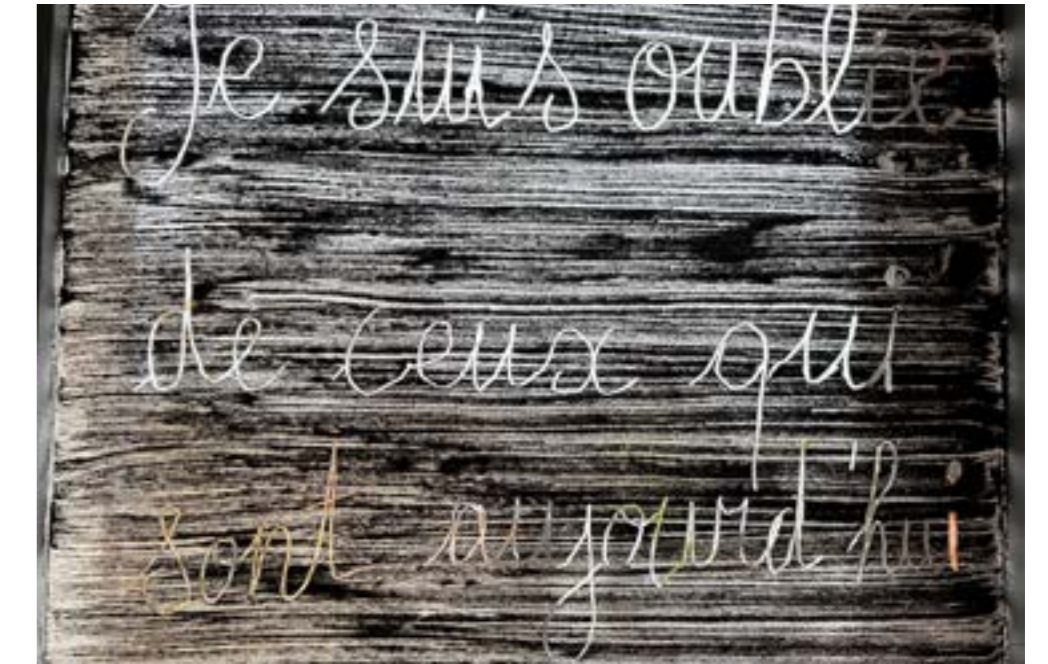 Je suis oublié
de ceux qui
sont aujourd'hui